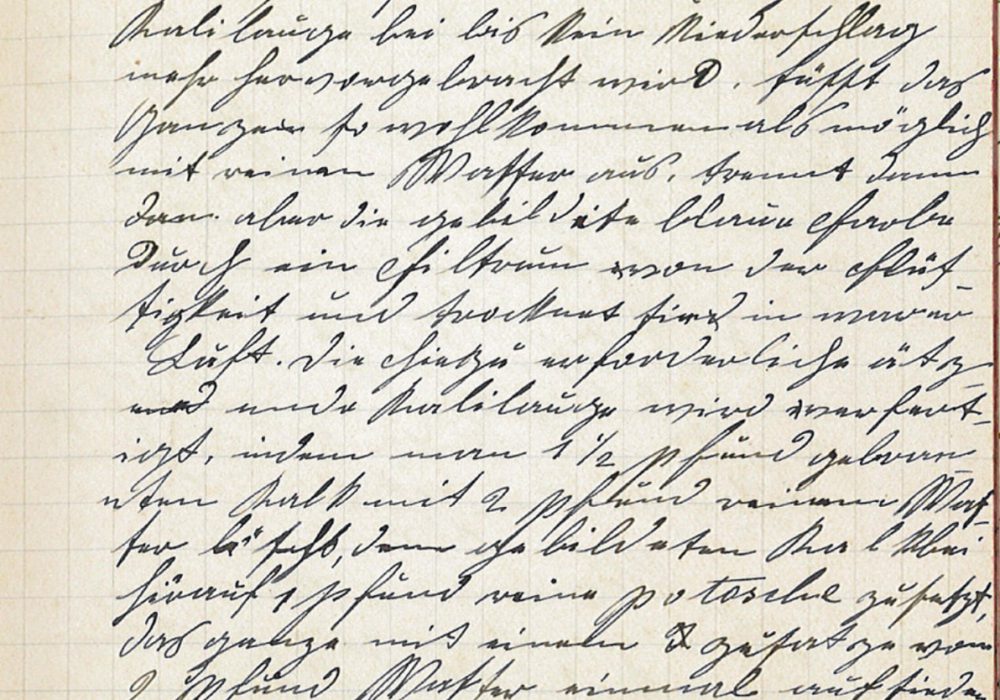 Kalilauge bei bis kein Niederschlag
mehr hervorgebracht wird. süsst das
Ganze so wohlkommen als möglich
mit reinen Wasser aus, trennt dann
dan. aber die gebildete blaue Farbe
durch ein Filtrum von der Flüs-
tigkeit und trocknet sie in warer
Luft. Die hiezu erforderliche ätz-
ende Kalilauge wird verfert-
igt, indem man 1 1/2 pfund gebran-
nten Kalk mit 2 pfund reinem Was-
ser löscht, dem gebildeten Kalkbei
hirauf 1 pfund reine potasche zusetzt,
das ganze mit einem zusatze von
2 pfund Wasser einmal aufsieden